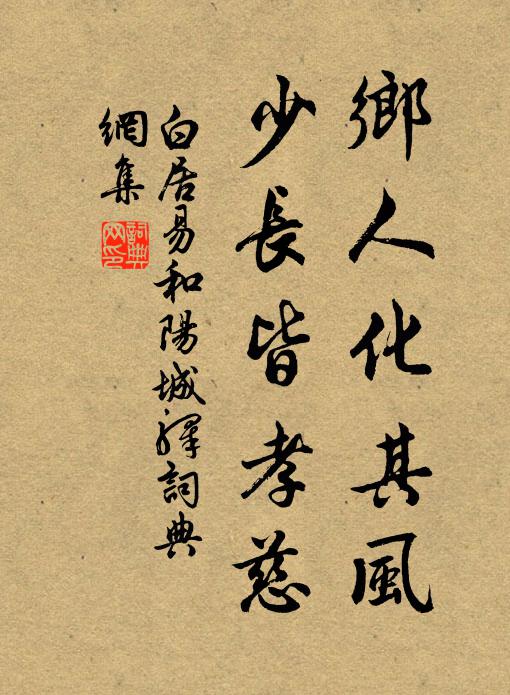 鄉人化其風
少長皆孝慈
白居易和陽城驛詞典
網集
詞典
网印